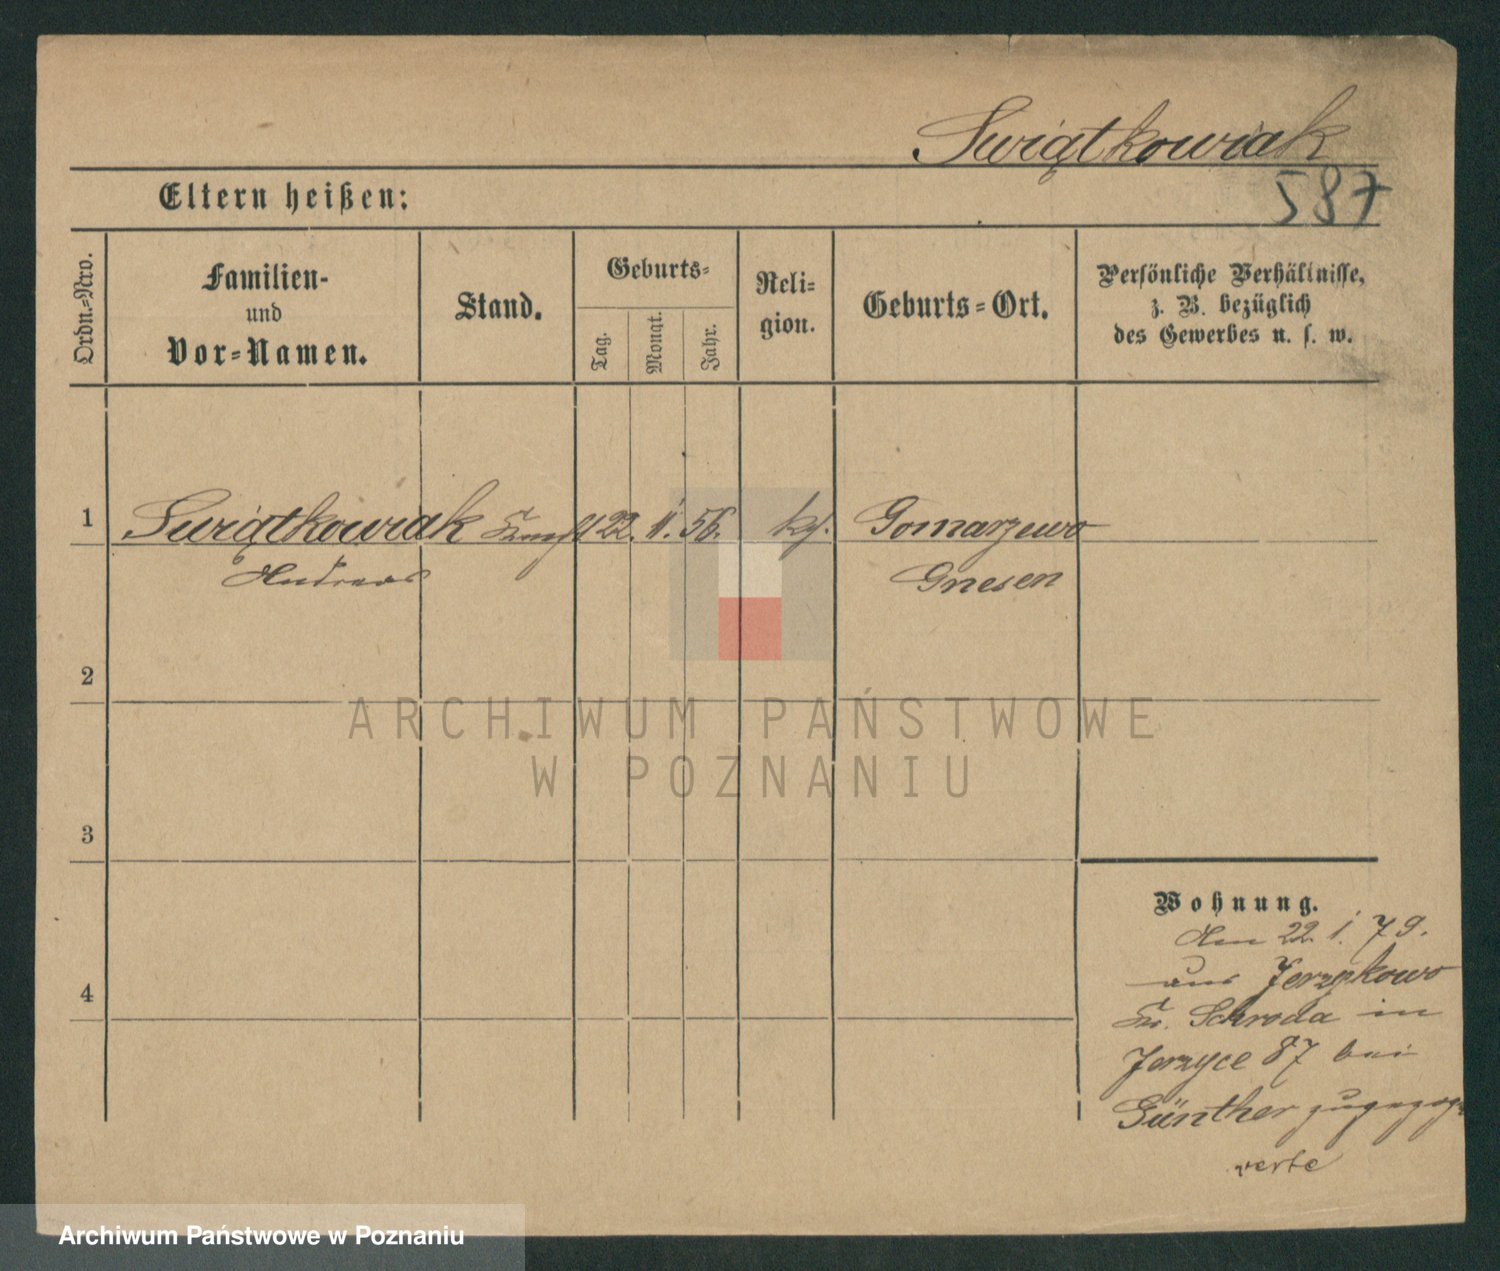 Swiątkowiak
587
Eltern heißen:
Ordn.=Nro.
Familien-
und
Vor=Namen.
Stand.
Geburts=
Tag.
Monat.
Jahr.
Reli=
gion.
Geburts=Ort.
Persönliche Verhältnisse,
z. B. bezüglich
des Gewerbes u. s. w.
1 Swiątkowiak 22. 11. 56. Gomarzewo
Andreas Gnesen
2
3
4
Wohnung.
Am 22. 1. 79.
aus Jerzykowo
Kr. Schroda in
Jerzyce 87 bei
Günther
verte
ARCHIWUM PAŃSTWOWE
W POZNANIU
Archiwum Państwowe w Poznaniu